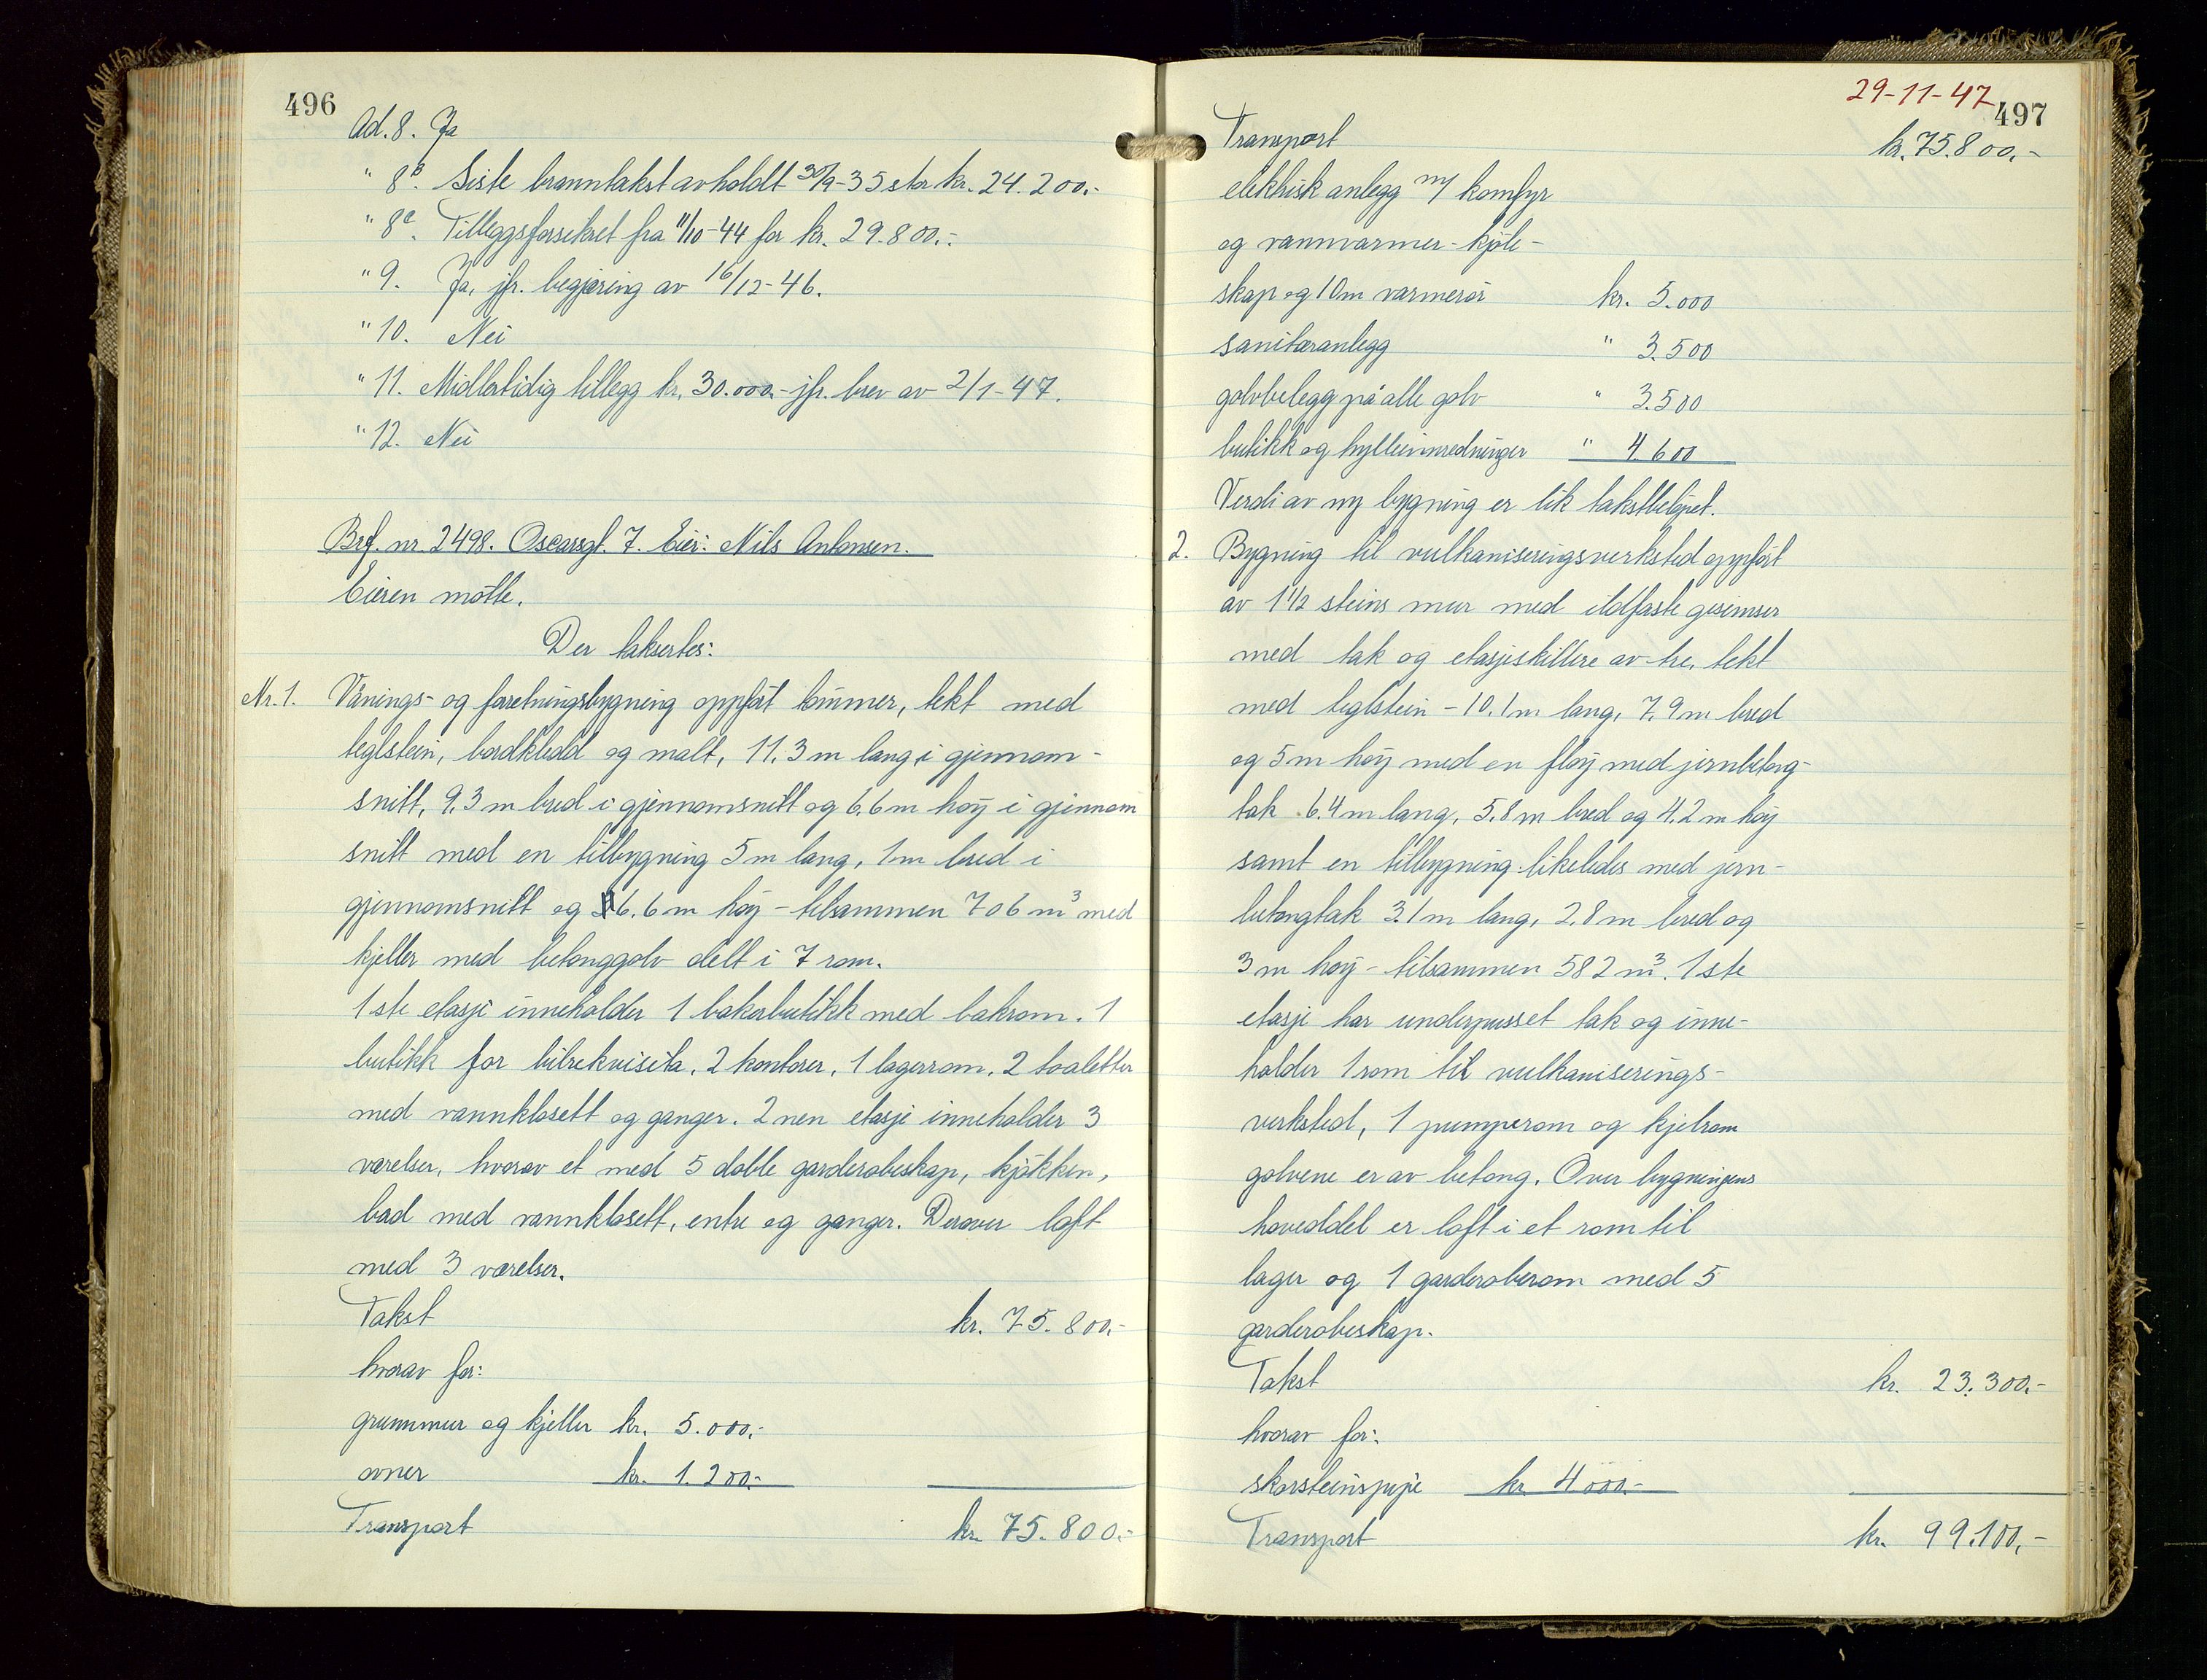 496
Ad. 8. Ja
" 8b. Siste branntakst avholdt 30/9-35 stor kr. 24.200.-
" 8c. Tilleggsforsikret fra 11/10-44 for kr. 29.800.-
" 9. Ja, jfr. begjæring av 16/12-46.
" 10. Nei
" 11. Midlertidig tillegg kr. 30.000.- jfr. brev av 2/1-47.
" 12. Nei
Brf. nr. 2498. Oscarsgt. 7. Eier: Nils Antonsen.
Eieren møtte.
Der taksertes:
Nr. 1. Vånings- og foretningsbygning oppført tømmer, tekt med
teglstein, bordkledd og malt, 11.3 m lang i gjennom-
snitt, 9.3 m bred i gjennomsnitt og 6.6 m høy i gjennom
snitt med en tilbygning 5 m lang, 1 m bred i
gjennomsnitt og 6.6 m høy - tilsammen 706 m³ med
kjeller med betonggolv delt i 7 rom.
1ste etasje inneholder 1 bakerbutikk med bakrom. 1
butikk for bilrekvisita, 2 kontorer, 1 lagerrom, 2 toaletter
med vannklosett og ganger. 2nen etasje inneholder 3
værelser, hvorav et med 5 doble garderobeskap, kjøkken,
bad med vannklosett, entre og ganger. Derover loft
med 3 værelser.
Takst kr. 75.800.-
hvorav for:
grunnmur og kjeller kr. 5.000.-
ovner kr. 1.200.-
Transport kr. 75.800.-
29-11-47
497
Transport kr. 75.800.-
elektrisk anlegg m/ komfyr
og vannvarmer - kjøle-
skap og 10 m varmerør kr. 5.000
sanitæranlegg " 3.500
golvbelegg på alle golv " 3.500
butikk og hylleinnredninger " 4.600
Verdi av ny bygning er lik takstbeløpet.
2. Bygning til vulkaniseringsverksted oppført
av 1 1/2 steins mur med ildfaste gesimser
med tak og etasjeskillere av tre, tekt
med teglstein - 10.1 m lang, 7.9 m bred
og 5 m høy med en fløy med jernbetong-
tak 6.4 m lang, 5.8 m bred og 4.2 m høy
samt en tilbygning likeledes med jern-
betongtak 3.1 m lang, 2.8 m bred og
3 m høy - tilsammen 582 m³. 1ste
etasje har underpusset tak og inne-
holder 1 rom til vulkaniserings-
verksted, 1 pumperom og kjelrom
golvene er av betong. Over bygningens
hoveddel er loft i et rom til
lager og 1 garderoberom med 5
garderobeskap.
Takst kr. 23.300.-
hvorav for:
skorsteinspipe kr. 4000.-
Transport kr. 99.100.-